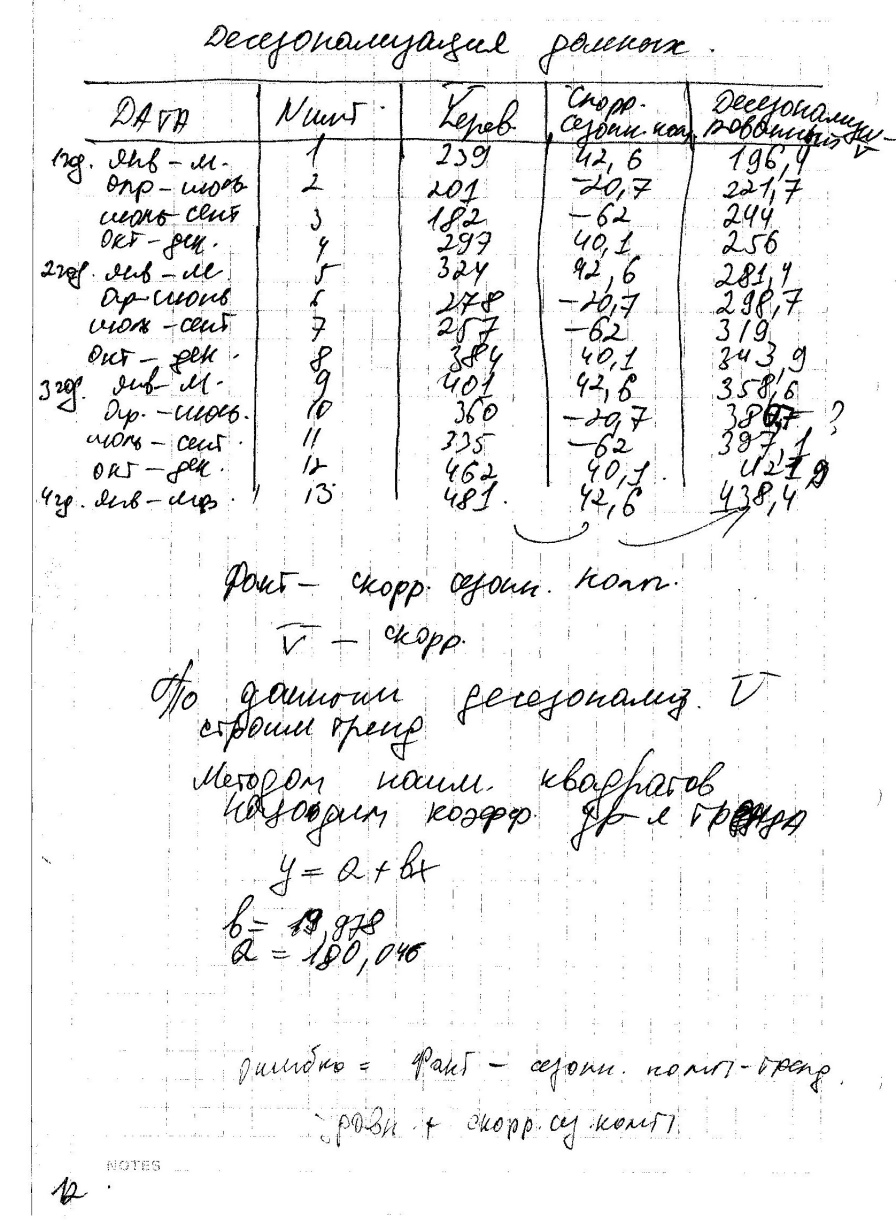 Десезонализация данных.
ДАТА N инт. V перев. Скорр. сезонн. комп. Десезонализированный V
1год. янв – м. 1 239 42,6 196,4
апр – июнь 2 201 -20,7 221,7
июль – сент 3 182 -62 244
окт – дек. 4 297 40,1 256
2год. янв – м. 5 324 42,6 281,4
ап – июнь 6 278 -20,7 298,7
июль – сент 7 257 -62 319
окт – дек. 8 384 40,1 343,9
3год. янв – м. 9 401 42,6 358,6
ап. – июнь. 10 360 -20,7 ?
июль – сент. 11 335 -62 397,1
окт – дек. 12 462 40,1 421,9
4гд. янв – мар. 13 481. 42,6 438,4
Факт – скорр. сезонн. комп.
V – скорр.
По данным десезонализ. V
строим тренд
Методом наим. квадратов
находим коэфф. ур-я тренда
y = a + bx
b = 19,978
a = 180,046
ошибка = Факт – сезонн. комп – тренд.
уровн. + скорр. сез. комп.
NOTES
12